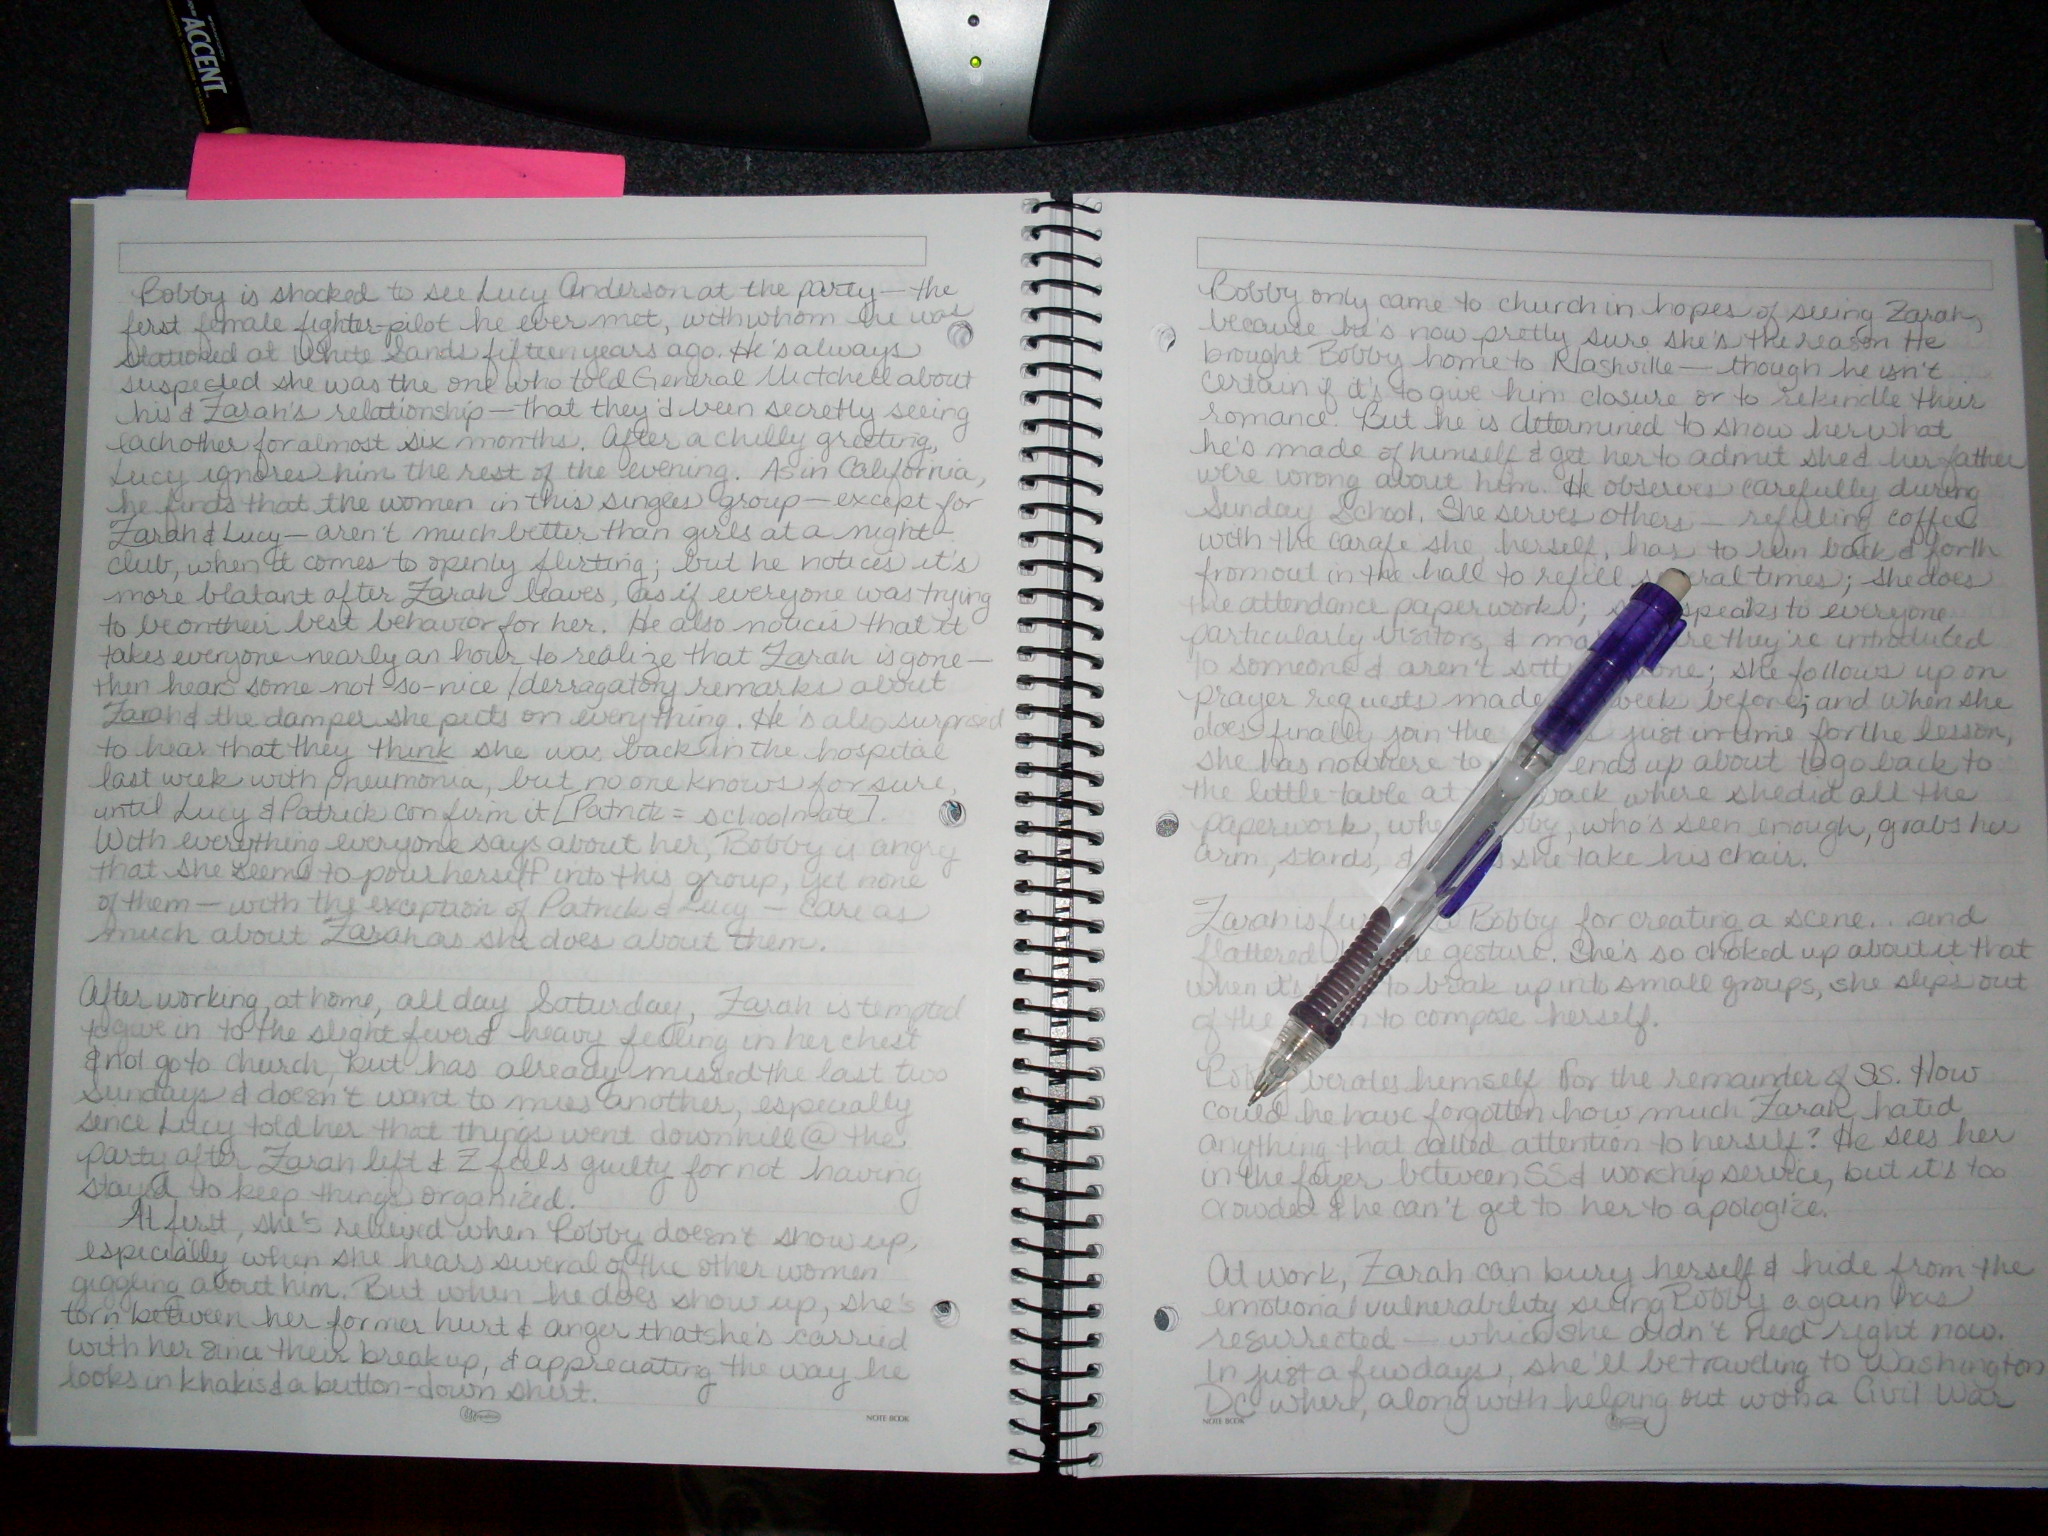 ACCENT
Bobby is shocked to see Lucy Anderson at the party — the
first female fighter-pilot he ever met, with whom he was
stationed at White Sands fifteen years ago. He's always
suspected she was the one who told General Mitchell about
his & Zarah's relationship — that they'd been secretly seeing
each other for almost six months. After a chilly greeting,
Lucy ignores him the rest of the evening. As in California,
he finds that the women in this singles group — except for
Zarah & Lucy — aren't much better than girls at a night-
club, when it comes to openly flirting; but he notices it's
more blatant after Zarah leaves, as if everyone was trying
to be on their best behavior for her. He also notices that it
takes everyone nearly an hour to realize that Zarah is gone —
then hears some not-so-nice/derragatory remarks about
Zarah & the damper she puts on everything. He's also surprised
to hear that they think she was back in the hospital
last week with pneumonia, but no one knows for sure,
until Lucy & Patrick confirm it [Patrick = schoolmate].
With everything everyone says about her, Bobby is angry
that she seems to pour herself into this group, yet none
of them — with the exception of Patrick & Lucy — care as
much about Zarah as she does about them.
After working, at home, all day Saturday, Zarah is tempted
to give in to the slight fever & heavy feeling in her chest
& not go to church, but has already missed the last two
Sundays & doesn't want to miss another, especially
since Lucy told her that things went downhill @ the
party after Zarah left & Z feels guilty for not having
stayed to keep things organized.
At first, she's relieved when Bobby doesn't show up,
especially when she hears several of the other women
giggling about him. But when he does show up, she's
torn between her former hurt & anger that she's carried
with her since their breakup, & appreciating the way he
looks in khakis & a button-down shirt.
NOTE BOOK
Bobby only came to church in hopes of seeing Zarah,
because he's now pretty sure she's the reason He
brought Bobby home to Nashville — though he isn't
certain if it's to give him closure or to rekindle their
romance. But he is determined to show her what
he's made of himself & get her to admit she & her father
were wrong about him. He observes carefully during
Sunday School. She serves others — refilling coffee
with the carafe she, herself, has to run back & forth
from out in the hall to refill several times; she does
the attendance paperwork; speaks to everyone
particularly visitors, & they're introduced
to someone & aren't; she follows up on
prayer requests made week before; and when she
does finally join the just in time for the lesson,
she has nowhere to ends up about to go back to
the little table at back where she did all the
paperwork, Bobby, who's seen enough, grabs her
arm, stands, & she take his chair.
Zarah is Bobby for creating a scene...and
flattered gesture. She's so choked up about it that
when it's to break up into small groups, she slips out
of the to compose herself.
himself for the remainder of SS. How
could he have forgotten how much Zarah hated
anything that called attention to herself? He sees her
in the foyer between SS & worship service, but it's too
crowded & he can't get to her to apologize.
At work, Zarah can bury herself & hide from the
emotional vulnerability seeing Bobby again has
resurrected — which she didn't need right now.
In just a few days, she'll be traveling to Washington
DC where, along with helping out with a Civil War
NOTE BOOK